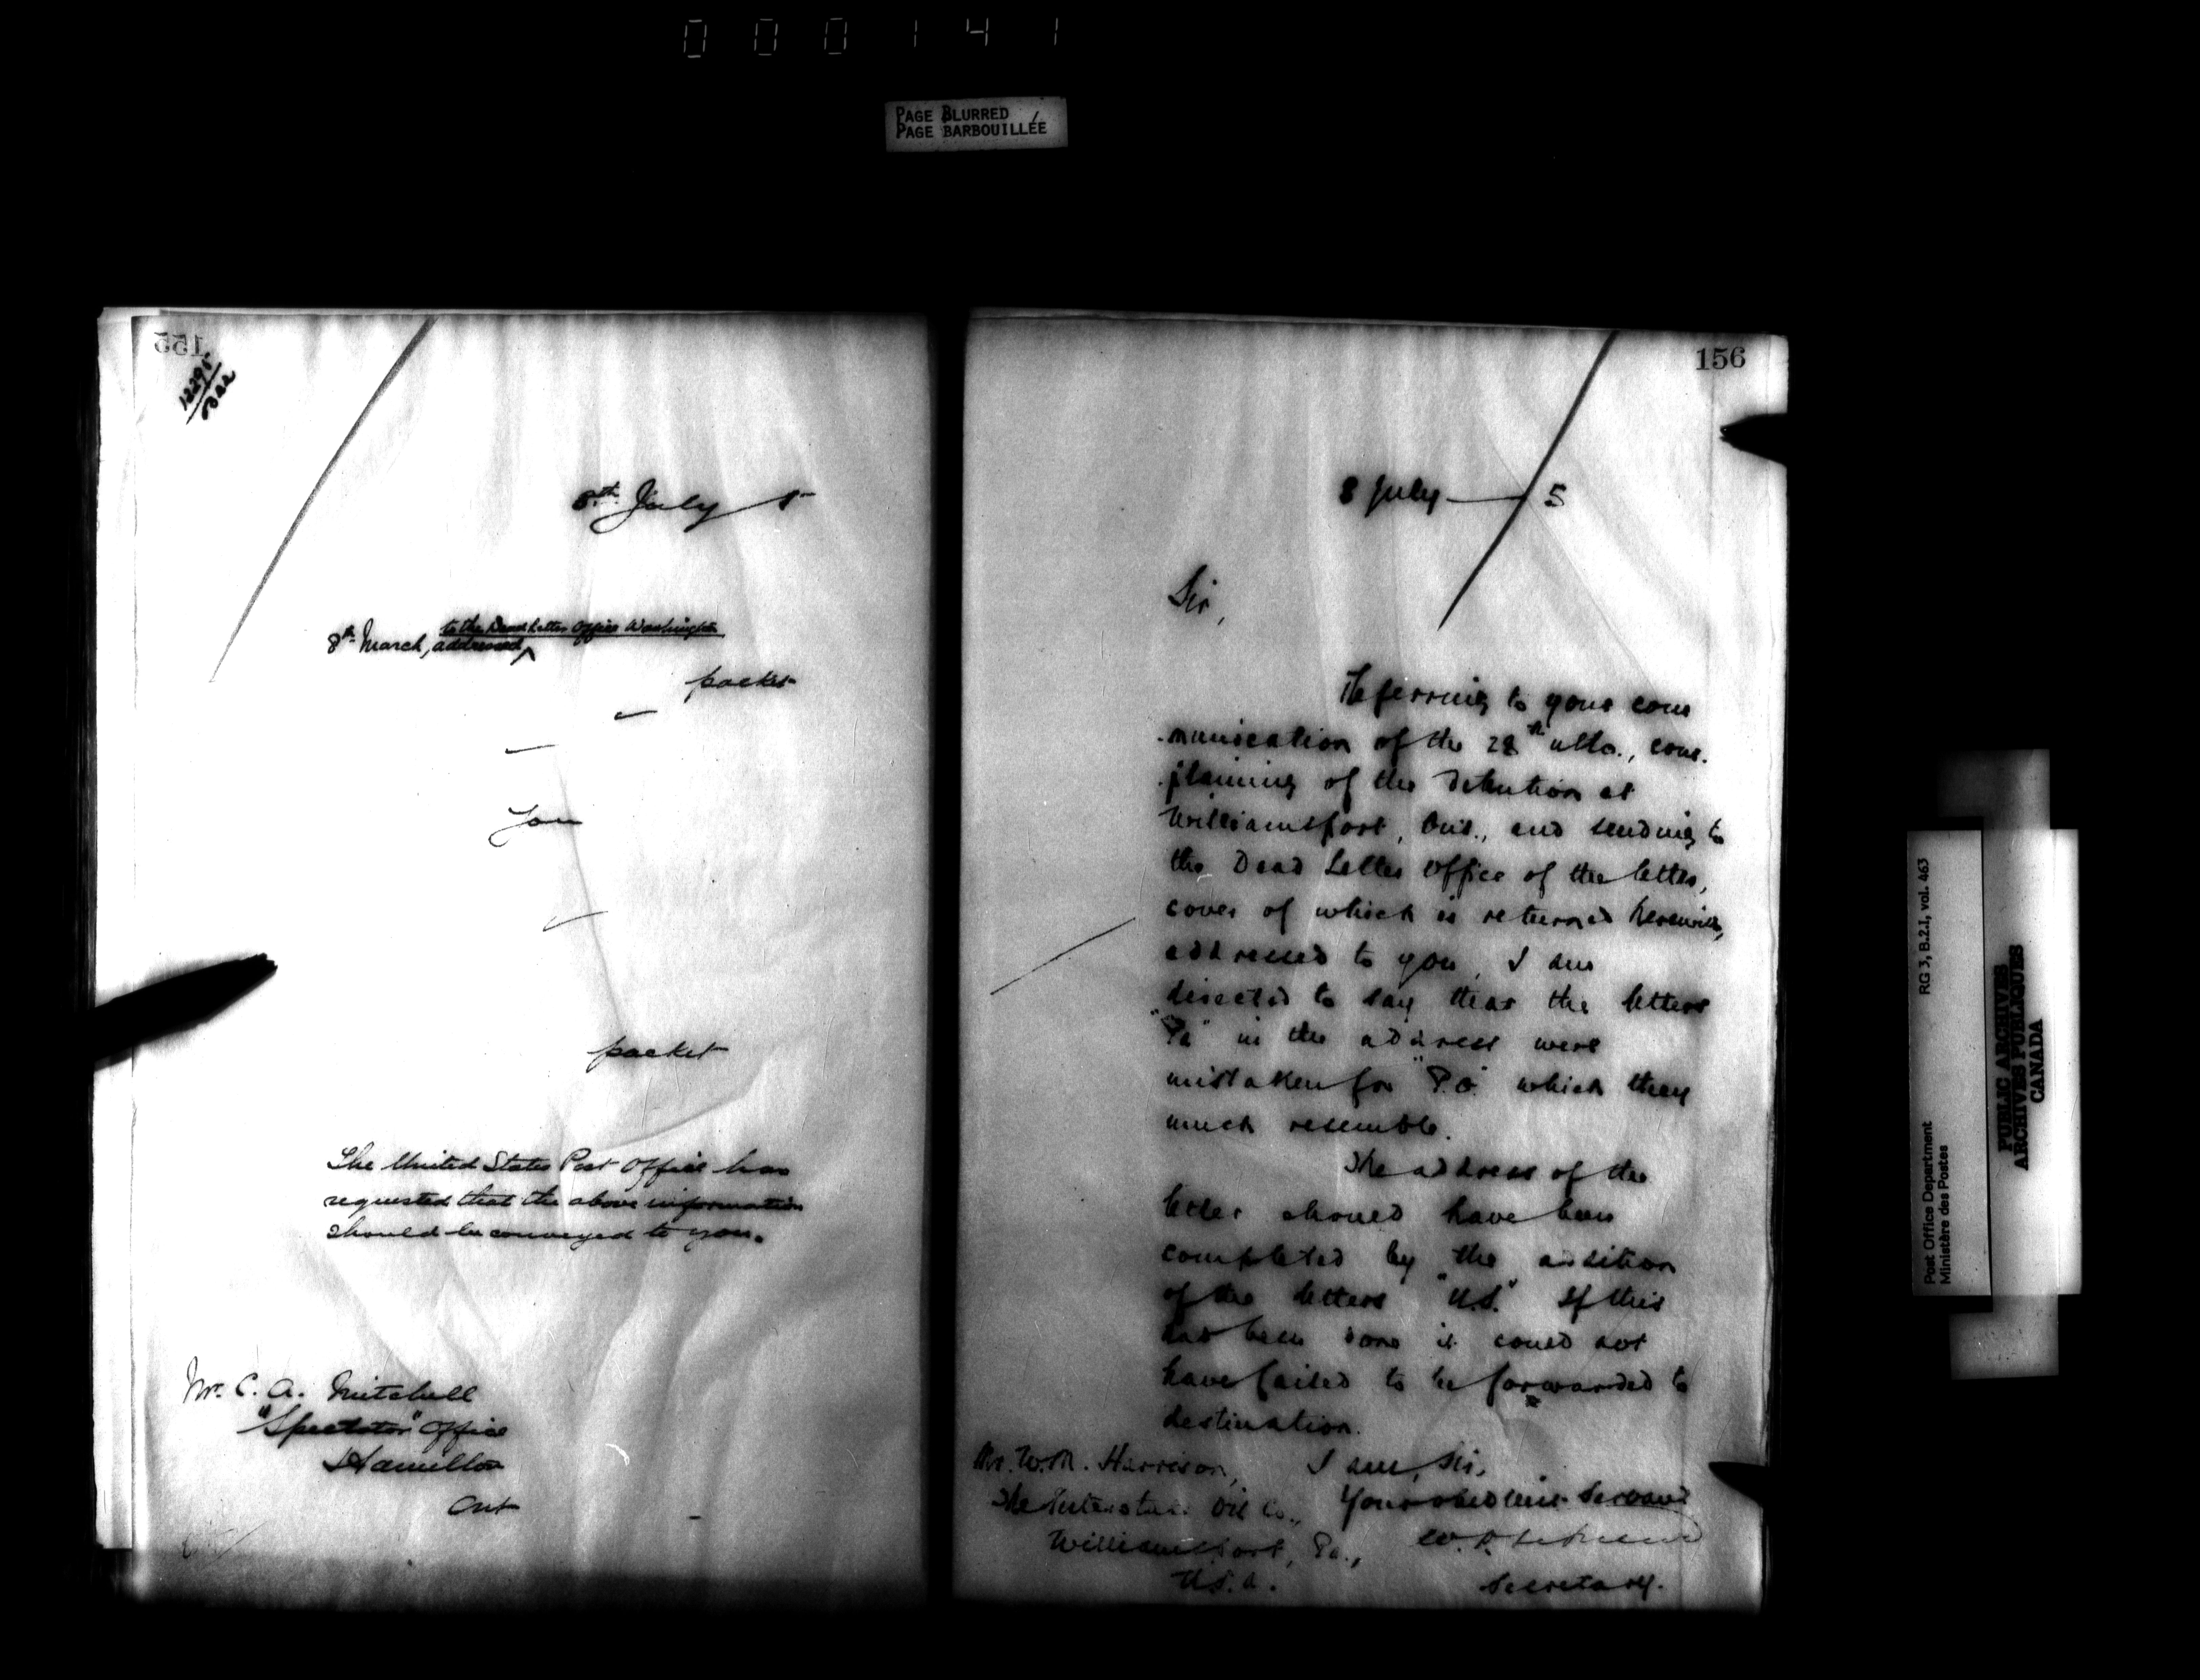 000141
PAGE BLURRED
PAGE BARBOUILLÉE
155
12295
8th July 5
to the Dead Letter Office Washington
8th March, addressed ^
packet
You
packet
The United States Post Office has
requested that the above information
should be conveyed to you.
Mr. C. A. Mitchell
"Spectator" Office
Hamilton
Ont
156
8 July 5
Sir,
Referring to your com
-munication of the 28th ulto., com-
-plaining of the detention at
Williamsfort, Ont., and sending to
the Dead Letter Office of the letter,
cover of which is returned herewith,
addressed to you, I am
directed to say that the letters
"Pa" in the address were
mistaken for "P.O." which they
much resemble.
The address of the
letter should have been
completed by the addition
of the letters "U.S." If this
had been done it could not
have failed to be forwarded to
destination.
I am, Sir,
Your obedient Servant
Secretary.
Mr. W. M. Harrison,
The Interstate Oil Co.,
Williamsport, Pa.,
U.S.A.
Post Office Department RG 3, B.2.1, vol. 463
Ministère des Postes
PUBLIC ARCHIVES
ARCHIVES PUBLIQUES
CANADA